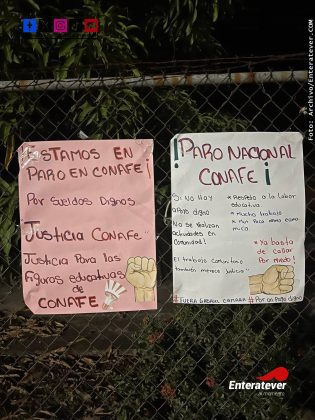 ESTAMOS EN
PARO EN CONAFE!
Por Sueldos Dignos
Justicia CONAFE"
Justicia Para las
figuras educativas
de CONAFE
¡PARO NACIONAL
CONAFE!
Si No Hay
apoyo digno
No se Realizan
actividades en
Comunidad!
* Respeto a la labor
educativa
* Mucho trabajo
El trabajo comunitario
también merece Justicia"
* Ya basta
de callar
Por Miedo!
#FUERA GABRIEL CAMARA
#Por un Pago digno
Foto: Archivo/Enteratever.com
Enteratever
al momento